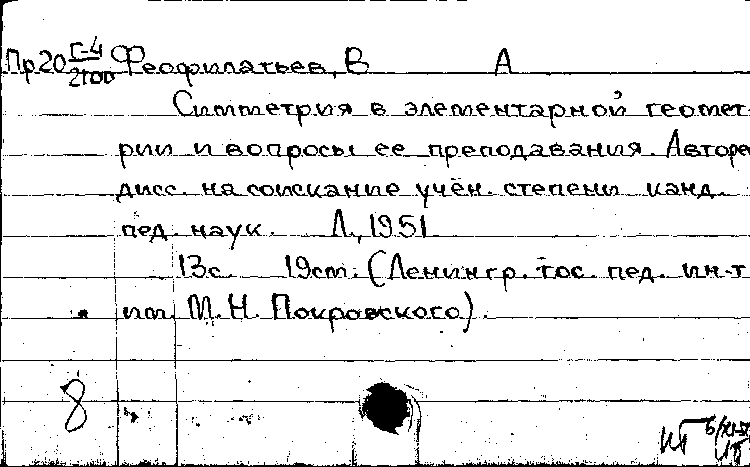 Пр20 Г-4/2100 Феофилатьев, В А
Симметрия в элементарной геомет
рии и вопросы ее преподавания. Авторе
дисс. на соискание учён. степени канд.
пед. наук. Л., 1951
13с. 19cm. (Ленингр. гос. пед. ин-т
им. М. Н. Покровского).
8